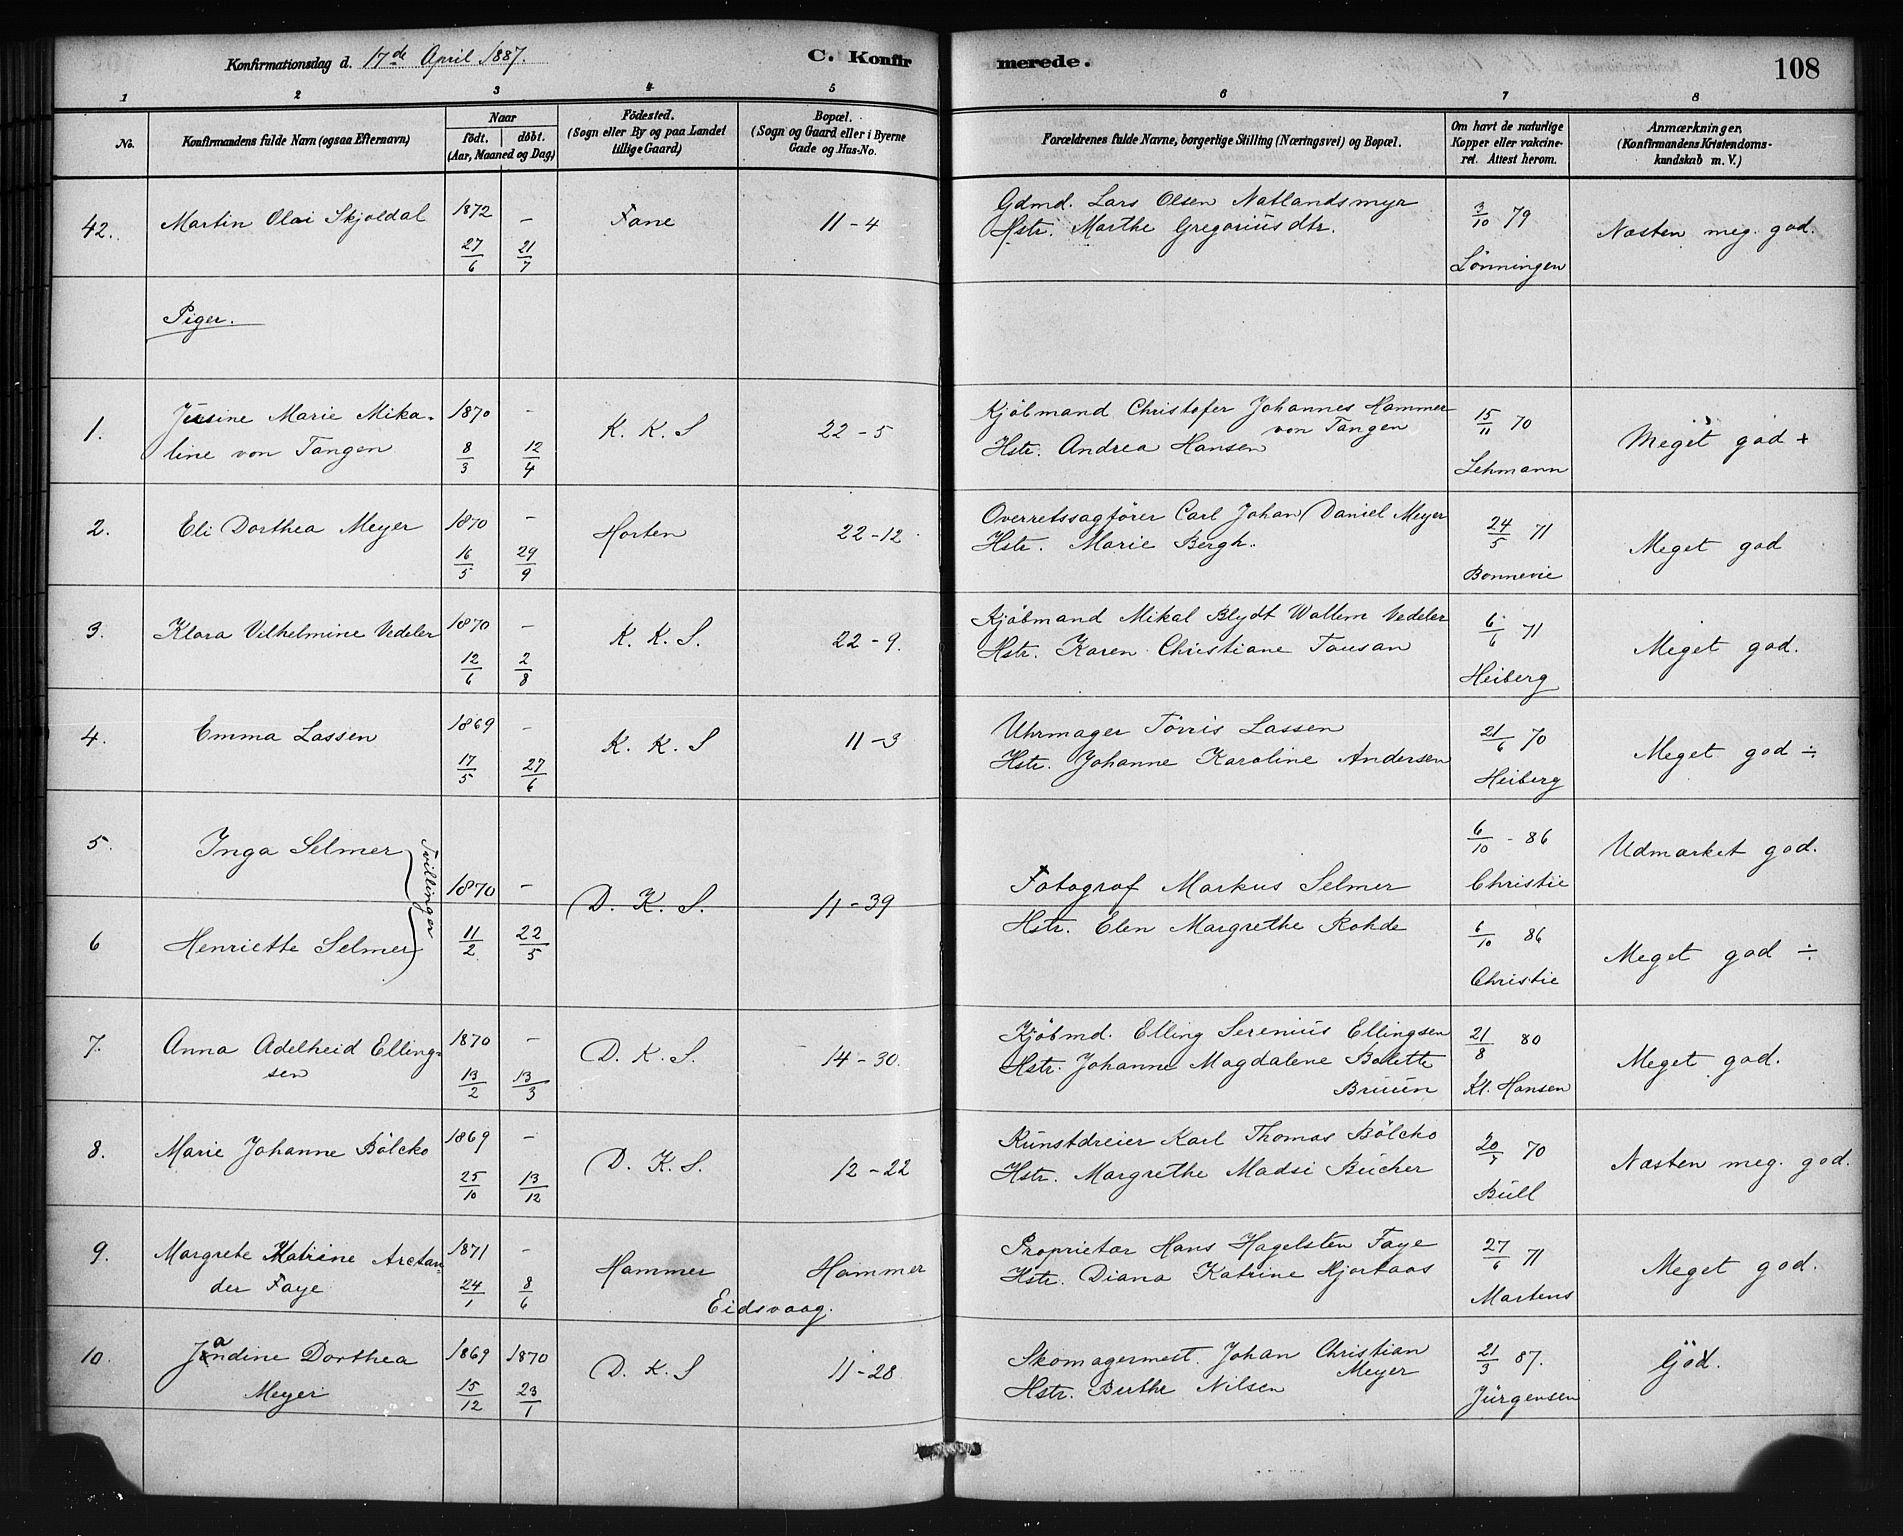 Konfirmationsdag d. 17de April 1887. C. Konfirmerede. 108
1 2 3 4 5 6 7 8
No. Konfirmandens fulde Navn (ogsaa Efternavn) Naar födt. döbt. (Aar, Maaned og Dag) Födested. (Sogn eller By og paa Landet tillige Gaard) Bopæl. (Sogn og Gaard eller i Byerne Gade og Hus-No. Forældrenes fulde Navne, borgerlige Stilling (Næringsvei) og Bopæl. Om havt de naturlige Kopper eller vakcineret. Attest herom. Anmærkninger, (Konfirmandens Kristendomskundskab m. V.)
42. Martin Olai Skjoldal 1872 – Fane 11-4 Gdmd. Lars Olsen Natlandsmyr 3/10 79 Næsten meg. god.
27/6 21/7 Hstr. Marthe Gregoriusdtr. Lönningen
Piger.
1. Justine Marie Mika- 1870 – K. K. S 22-5 Kjöbmand Christofer Johannes Hammer 15/11 70 Meget god +
line von Tangen 8/3 12/4 Hstr. Andrea Hansen von Tangen Lehmann
2. Eli Dorthea Meyer 1870 – Horten 22-12. Overretssagförer Carl Johan Daniel Meyer 24/5 71 Meget god
16/5 29/9 Hstr. Marie Bergh. Bonnevie
3. Klara Vilhelmine Vedeler 1870 – K. K. S. 22-9. Kjöbmand Mikal Blydt Wallem Vedeler 6/6 71 Meget god.
12/6 2/8 Hstr. Karen Christiane Tausan Heiberg
4. Emma Lassen 1869 – K. K. S 11-3 Uhrmager Tönis Lassen 21/6 70 Meget god ÷
17/5 27/6 Hstr. Johanne Karoline Andersen Heiberg
5. Inga Selmer Tvillinger 6/10 - 86 Udmærket god.
1870 – D. K. S. 11-39 Fotograf Markus Selmer Christie
6 Henriette Selmer 11/2 22/5 Hstr. Elen Margrethe Rohde 6/10 86 Meget god ÷
Christie
7. Anna Adelheid Elling- 1870 – D. K. S. 14-30. Kjöbmd. Elling Serenius Ellingsen 21/8 80 Meget god.
sen 13/2 13/3 Hstr. Johanne Magdalene Bolette
Bruun Kl. Hansen
8. Marie Johanne Bölcko 1869 – D. K. S. 12-22 Kunstdreier Karl Thomas Bölcko 20/7 70 Næsten meg. god.
25/10 13/12 Hstr. Margrethe Madsi Bücher Bull
9. Margrete Katrine Arctan- 1871 – Hammer Hammer Proprietær Hans Hagelsten Faye 27/6 71 Meget god.
der Faye 24/1 8/6 Eidsvaag. Hstr. Diana Katrine Hjortaas Martens
10. Jandine Dorthea 1869 1870 D. K. S 11-28 Skomagermest. Johan Christian Meyer 21/3 87. God.
Meyer 15/12 23/1 Hstr. Berthe Nilsen Jürgensen